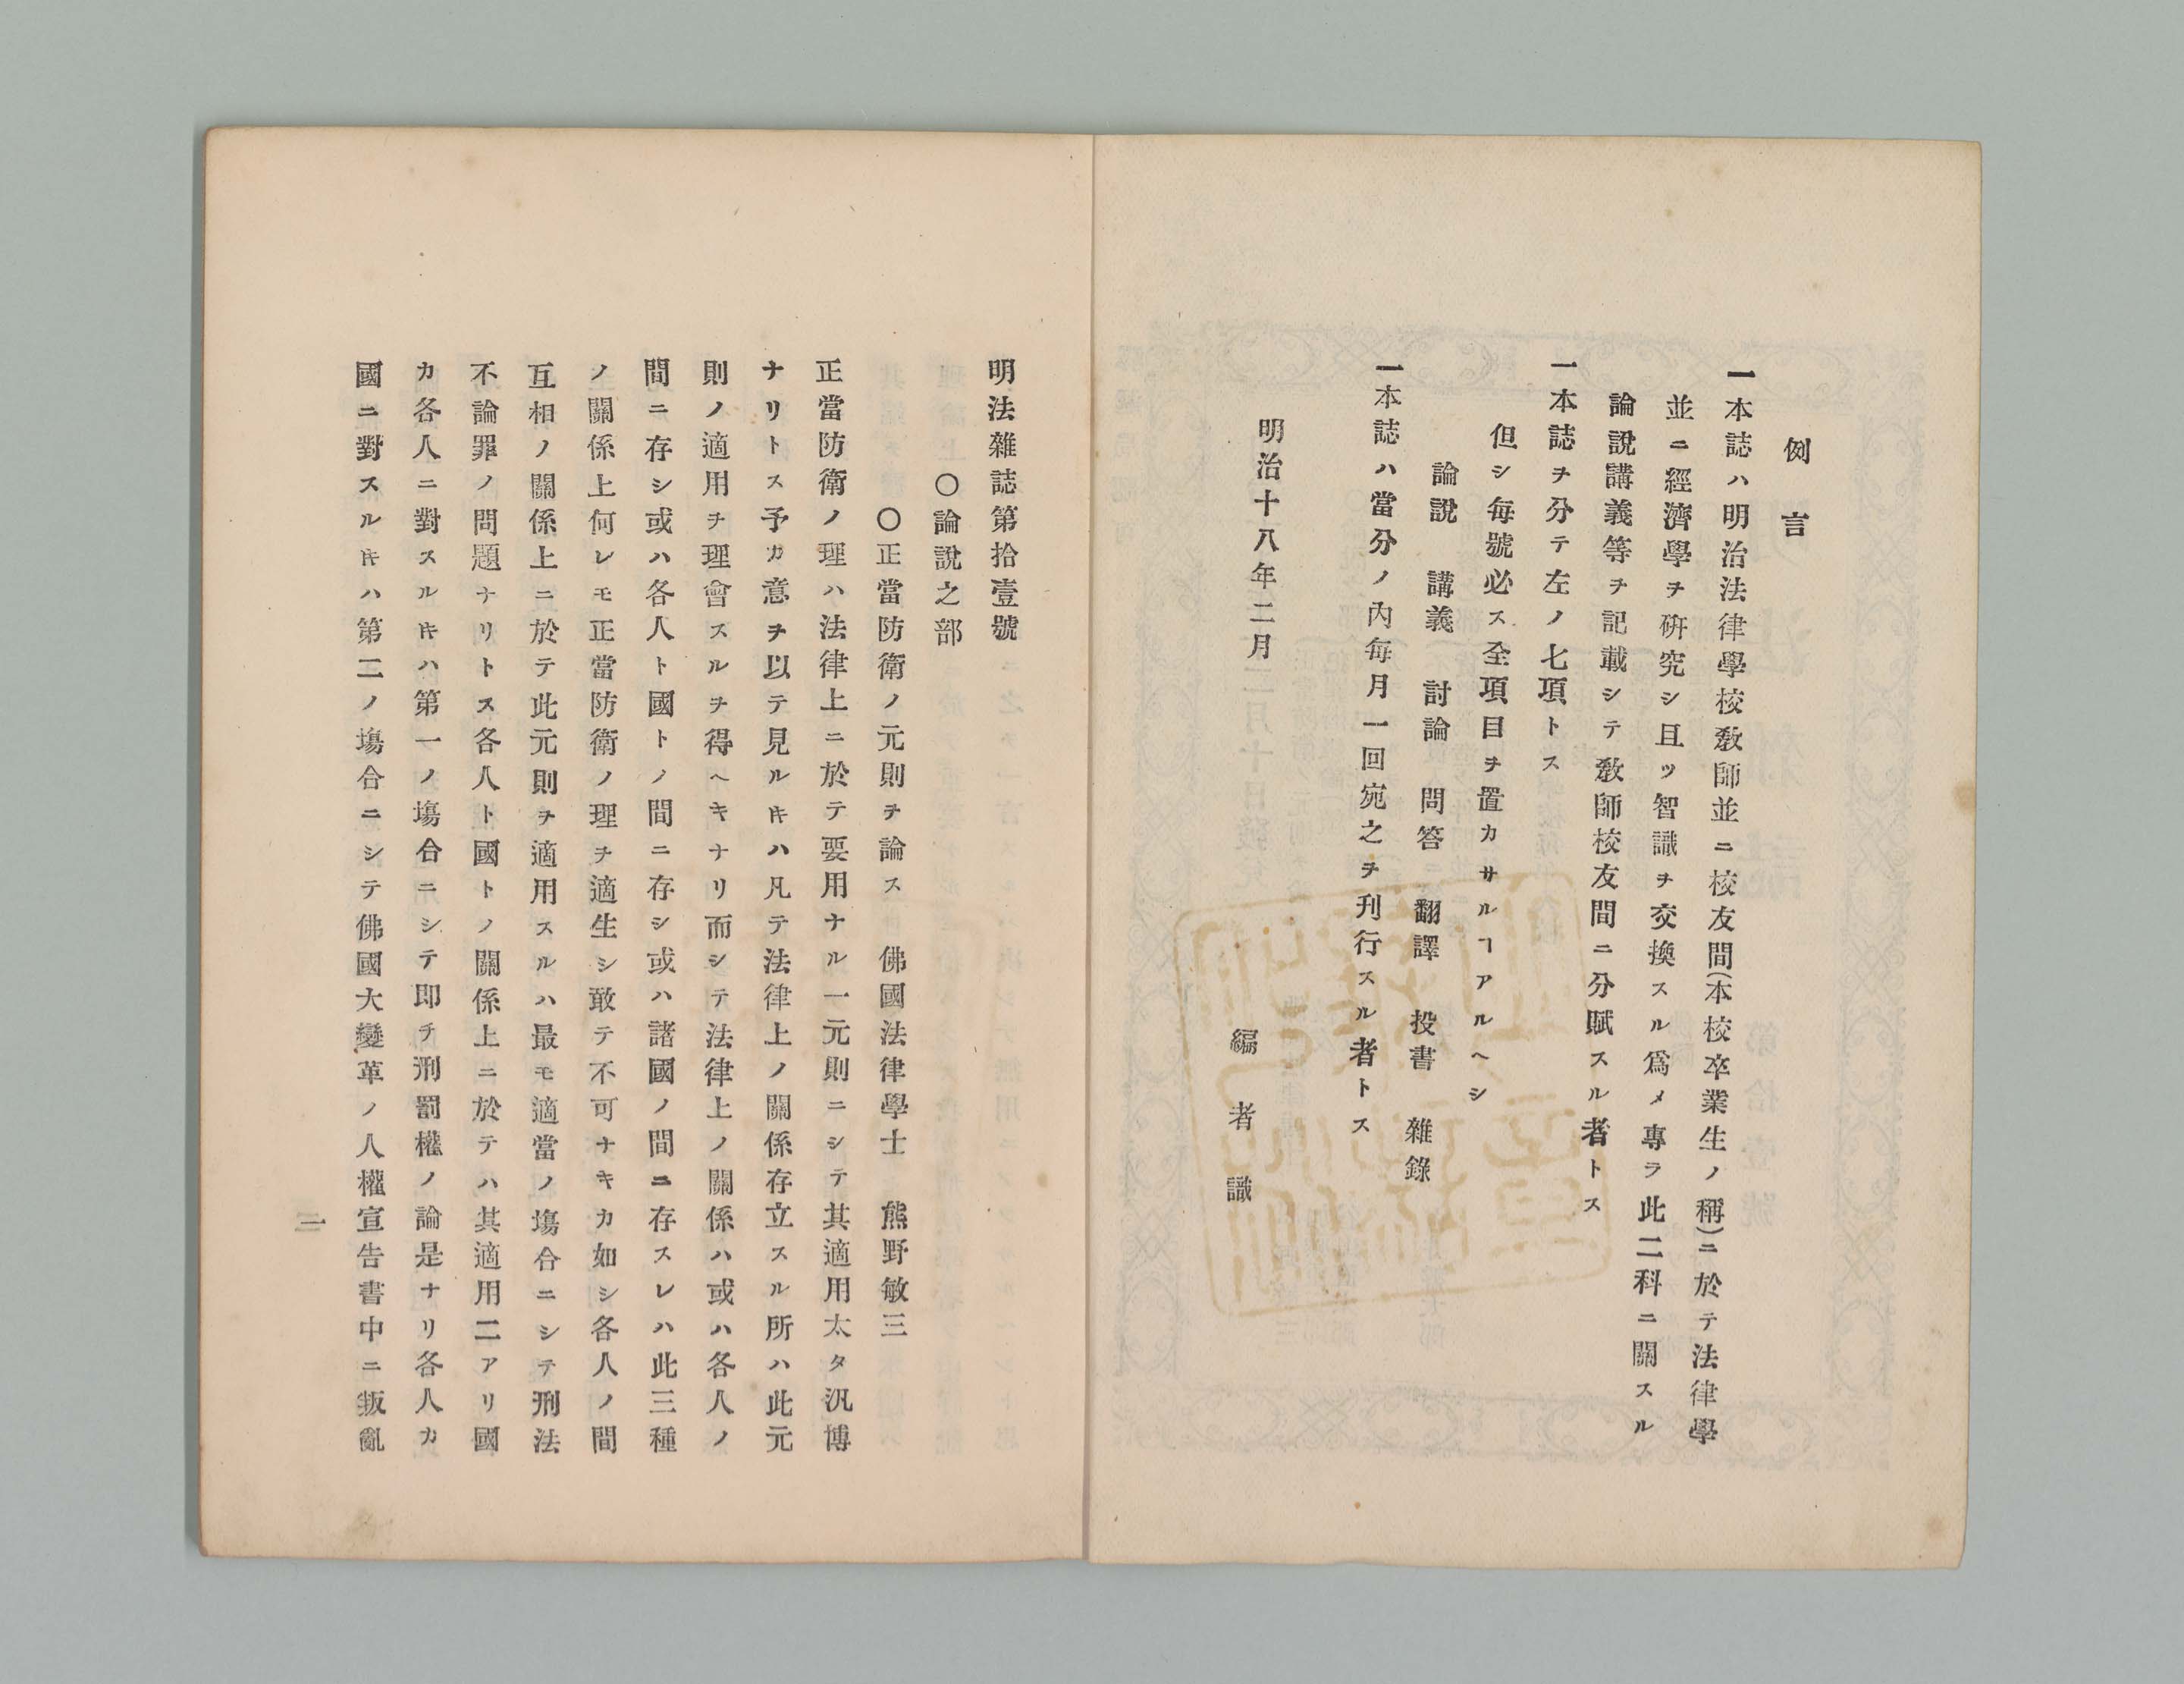 例言
一本誌ハ明治法律學校敎師並ニ校友間(本校卒業生ノ稱)ニ於テ法律學
並ニ經濟學ヲ硏究シ且ツ智識ヲ交換スル爲メ專ラ此二科ニ關スル
論說講義等ヲ記載シテ敎師校友間ニ分賦スル者トス
一本誌ヲ分テ左ノ七項トス
但シ每號必ス全項目ヲ置カサルヿアルヘシ
論說 講義 討論 問答 翻譯 投書 雜錄
一本誌ハ當分ノ內每月一回宛之ヲ刊行スル者トス
明治十八年二月
編者識
明法雜誌第拾壹號
〇論說之部
〇正當防衛ノ元則ヲ論ス 佛國法律學士 熊野敏三
正當防衛ノ理ハ法律上ニ於テ要用ナル一元則ニシテ其適用太タ汎博
ナリトス予カ意ヲ以テ見ルㇳキハ凡テ法律上ノ關係存立スル所ハ此元
則ノ適用ヲ理會スルヲ得ヘキナリ而シテ法律上ノ關係ハ或ハ各人ノ
間ニ存シ或ハ各人ト國トノ間ニ存シ或ハ諸國ノ間ニ存スレハ此三種
ノ關係上何レモ正當防衛ノ理ヲ適生シ敢テ不可ナキカ如シ各人ノ間
互相ノ關係上ニ於テ此元則ヲ適用スルハ最モ適當ノ塲合ニシテ刑法
不論罪ノ問題ナリトス各人ト國トノ關係上ニ於テハ其適用二アリ國
カ各人ニ對スルㇳキハ第一ノ塲合ニシテ即チ刑罰權ノ論是ナリ各人カ
國ニ對スルㇳキハ第二ノ塲合ニシテ佛國大變革ノ人權宣吿書中ニ叛亂
一